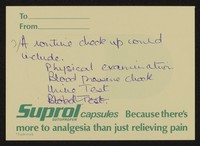 To
From
A routine check up could
include.
Physical examination
Blood pressure check
Urine Test
Blood Test.
Suprol capsules Because there's
more to analgesia than just relieving pain